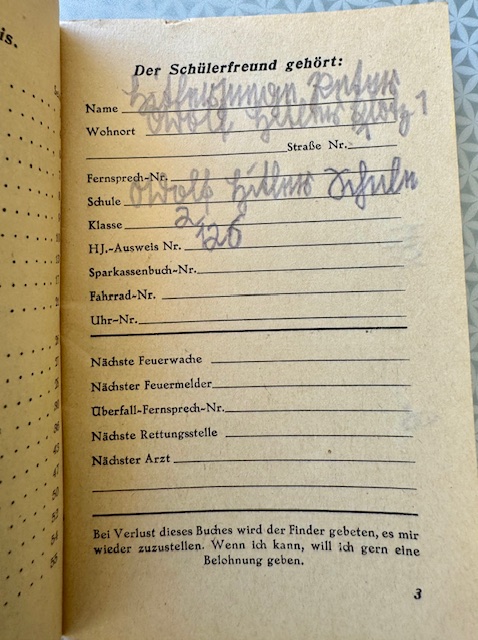 is.
43
47
50
53
54
55
Der Schülerfreund gehört:
Name Hitlerjunge Peter
Wohnort Adolf Hitler Platz 1
Straße Nr.
Fernsprech-Nr.
Schule Adolf Hitler Schule
Klasse 2
HJ.-Ausweis Nr. 126
Sparkassenbuch-Nr.
Fahrrad-Nr.
Uhr-Nr.
Nächste Feuerwache
Nächster Feuermelder
Überfall-Fernsprech-Nr.
Nächste Rettungsstelle
Nächster Arzt
Bei Verlust dieses Buches wird der Finder gebeten, es mir
wieder zuzustellen. Wenn ich kann, will ich gern eine
Belohnung geben.
3